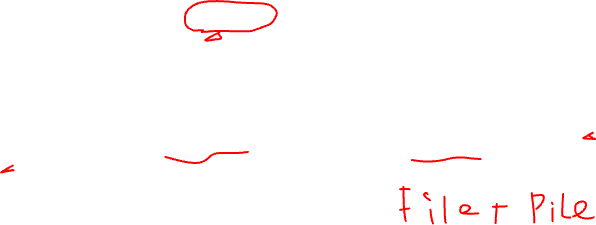 File + PiLe